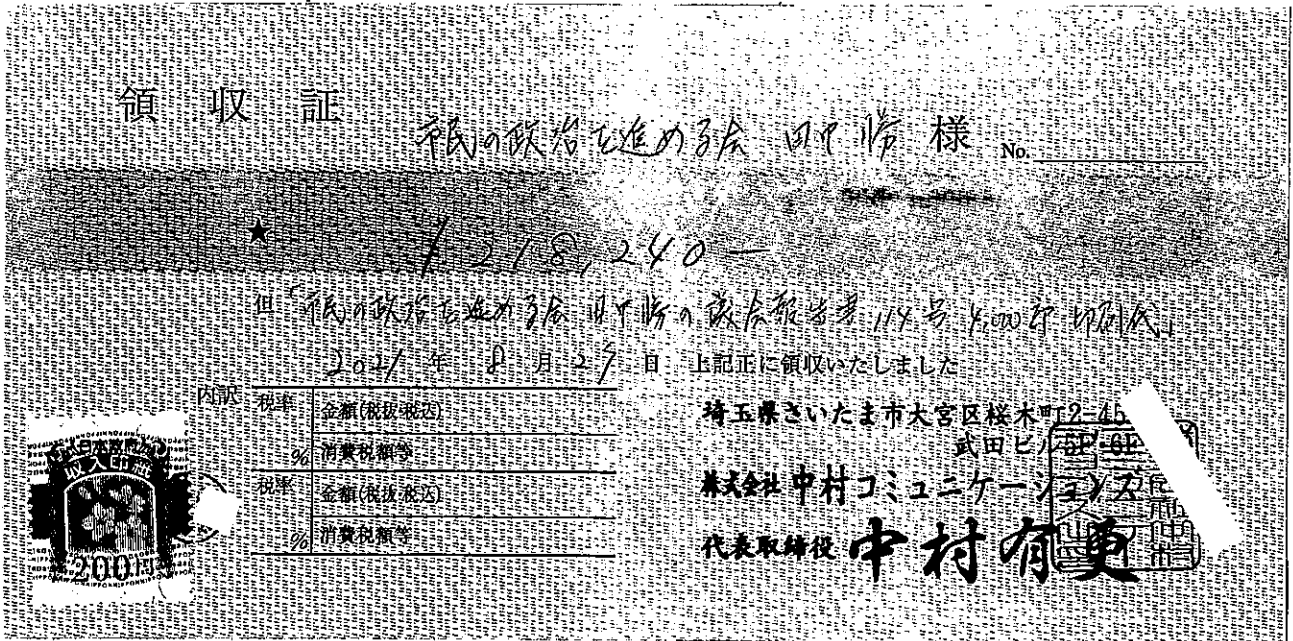 領収証
市民の政治を進める会 田中勝 様 No.
★ ¥218,240—
但「市民の政治を進める会 田中勝の議会報告書 114号 4,000部 印刷代」
2021年 8月29日 上記正に領収いたしました
内訳
税率 金額(税抜・税込)
% 消費税額等
税率 金額(税抜・税込)
% 消費税額等
埼玉県さいたま市大宮区桜木町2-45
武田ビル5F・6F
株式会社中村コミュニケーションズ
代表取締役 中村有
日本政府
収入印紙
200円